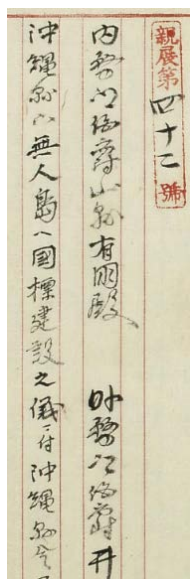 親展第四十二號
内務卿伯爵山縣有朋殿　外務卿伯爵井
沖縄縣下無人島へ國標建設之儀ニ付沖縄縣令